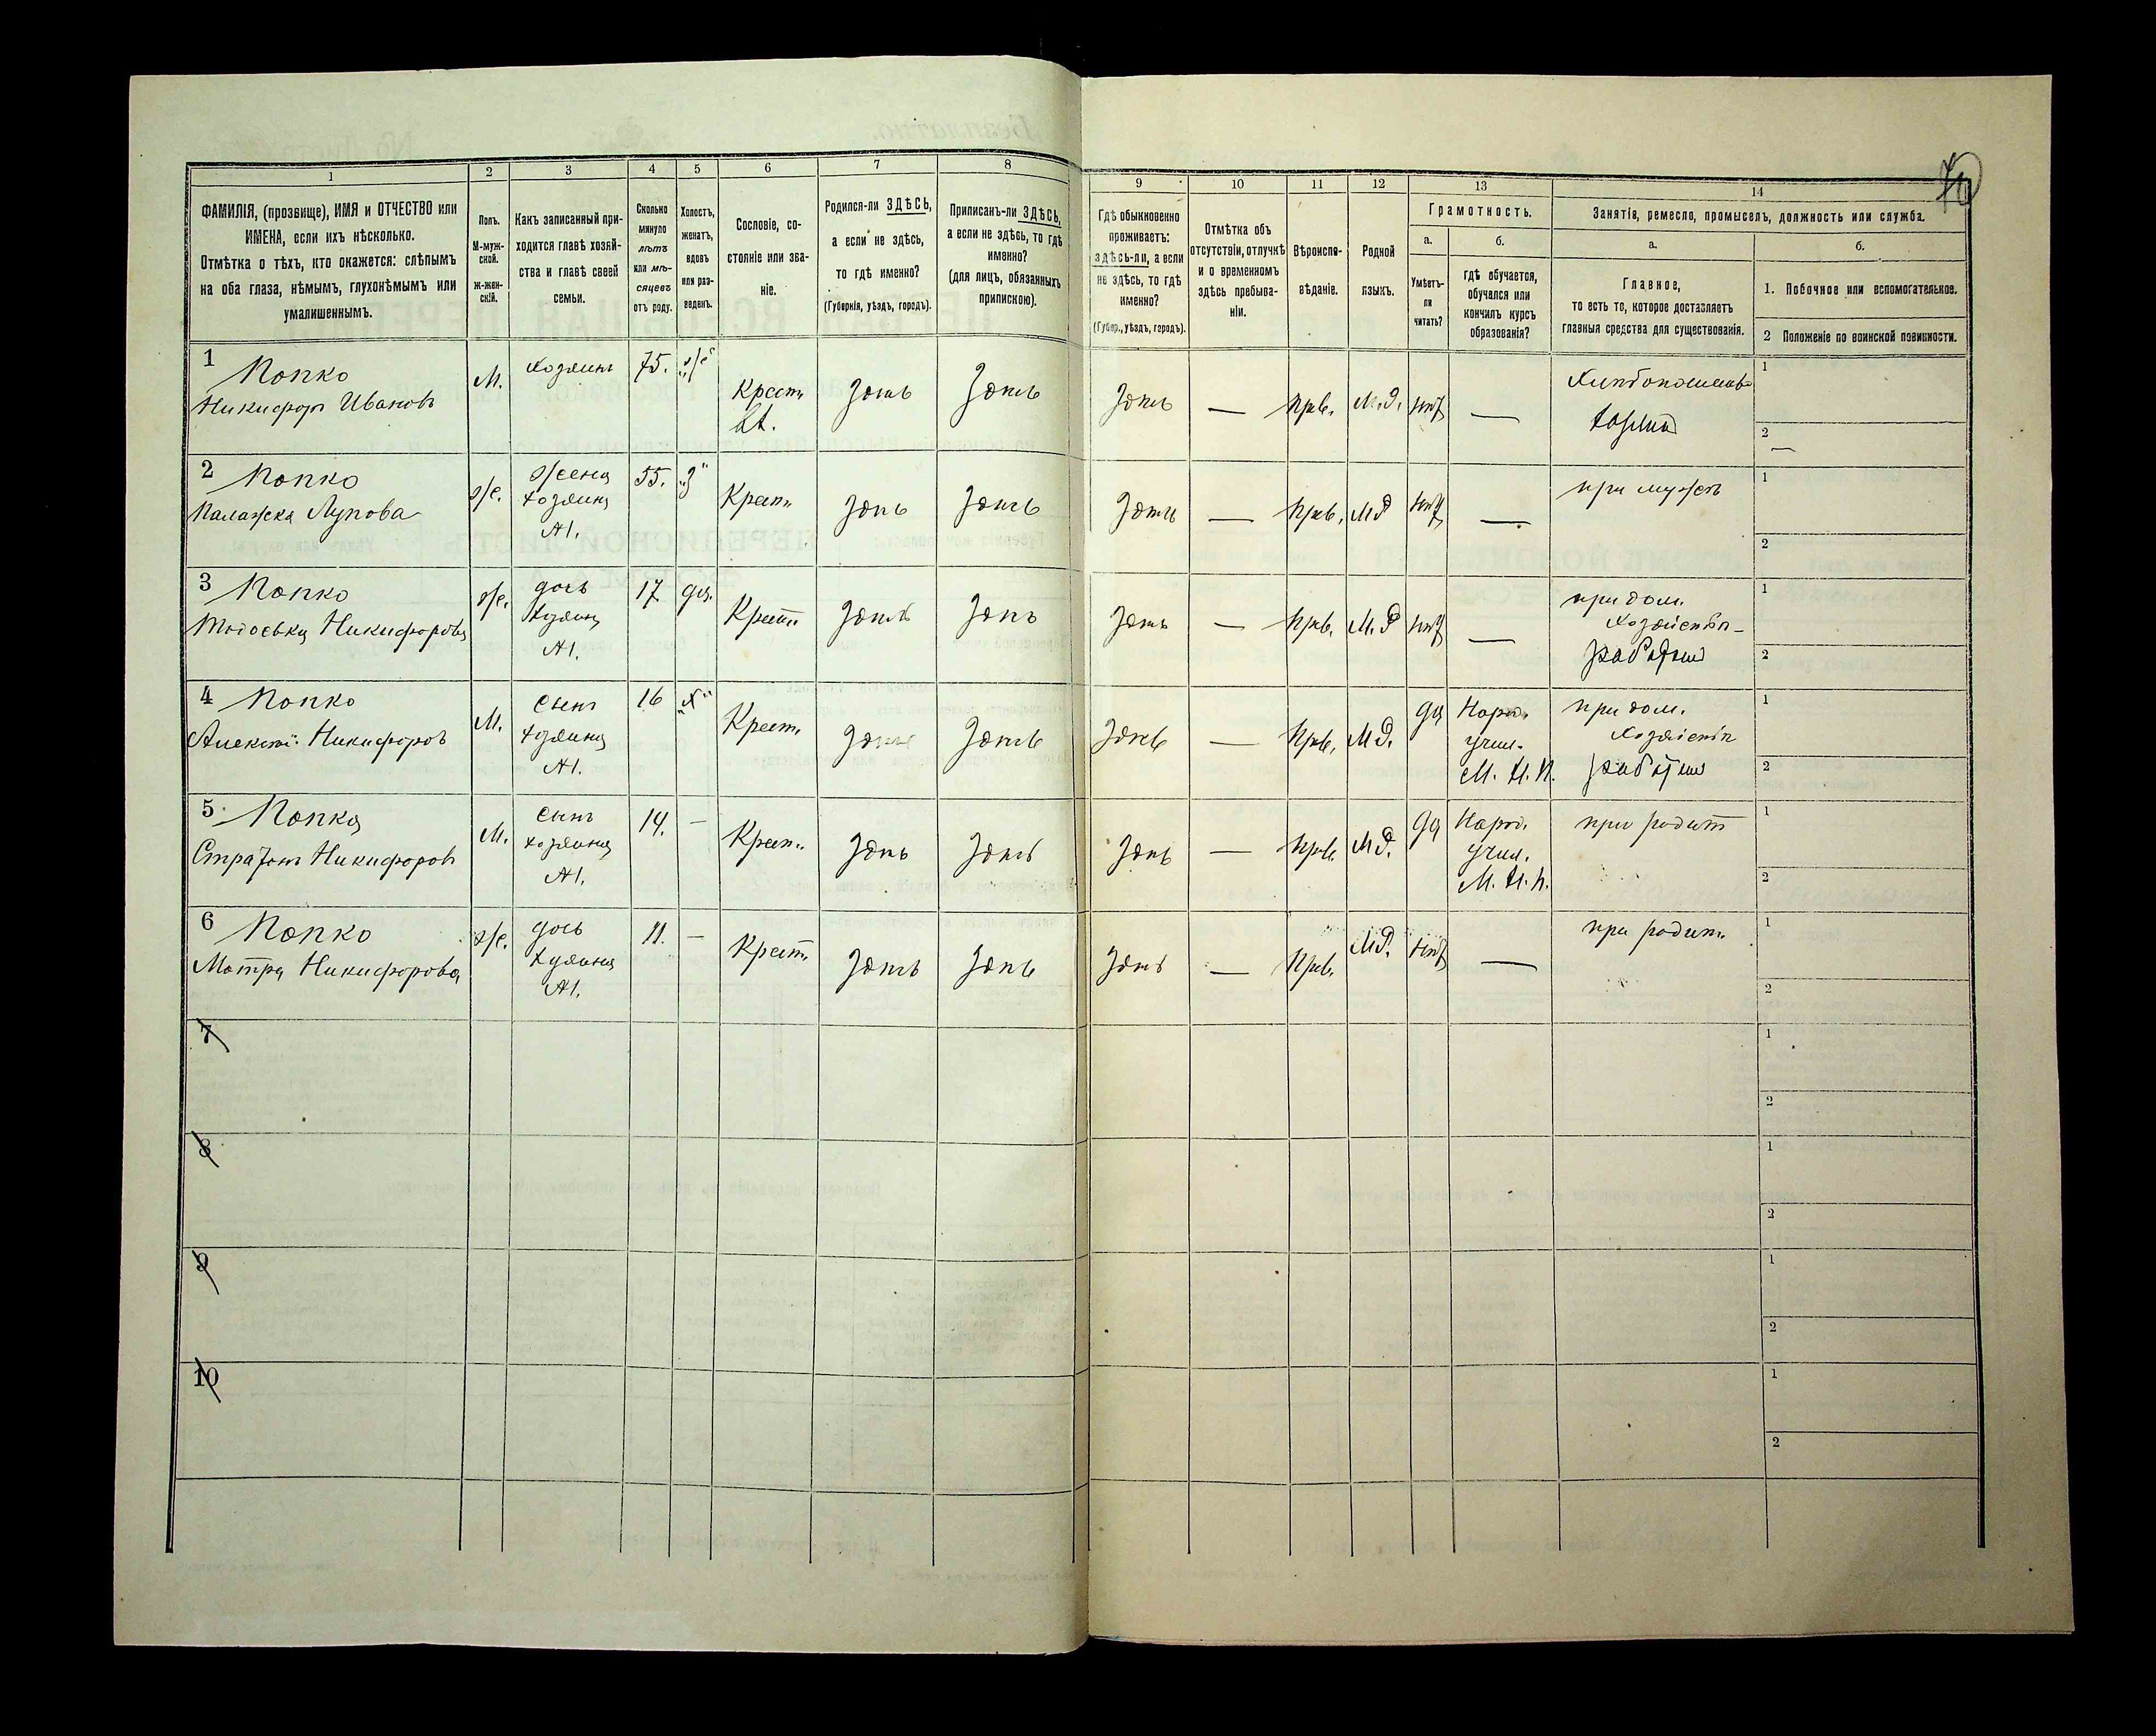 70
1 2 3 4 5 6 7 8
ФАМИЛІЯ, (прозвище), ИМЯ и ОТЧЕСТВО или
ИМЕНА, если ихъ нѣсколько.
Отмѣтка о тѣхъ, кто окажется: слѣпымъ
на оба глаза, нѣмымъ, глухонѣмымъ или
умалишеннымъ.
Полъ.
М-муж-
ской.
Ж-жен-
скій.
Какъ записанный при-
ходится главѣ хозяй-
ства и главѣ своей
семьи.
Сколько
минуло
лѣтъ
или мѣ-
сяцевъ
отъ роду.
Холостъ,
женатъ,
вдовъ
или раз-
веденъ.
Сословіе, со-
стояніе или зва-
ніе.
Родился-ли ЗДѢСЬ,
а если не здѣсь,
то гдѣ именно?
(Губернія, уѣздъ, городъ).
Приписанъ-ли ЗДѢСЬ,
а если не здѣсь, то гдѣ
именно?
(для лицъ, обязанныхъ
припискою).
9 10 11 12 13 14
Гдѣ обыкновенно
проживаетъ:
здѣсь-ли, а если
не здѣсь, то гдѣ
именно?
(Губер., уѣздъ, городъ).
Отмѣтка объ
отсутствіи, отлучкѣ
и о временномъ
здѣсь пребыва-
ніи.
Вѣроиспо-
вѣданіе.
Родной
языкъ.
Грамотность.
а.
Умѣетъ-
ли
читать?
б.
гдѣ обучается,
обучался или
кончилъ курсъ
образованія?
Занятія, ремесло, промыселъ, должность или служба.
а.
Главное,
то есть то, которое доставляетъ
главныя средства для существованія.
б.
1. Побочное или вспомогательное.
2 Положеніе по воинской повинности.
1 Попко
Никифоръ Ивановъ
М.
хозяинъ
75.
"ж"
Крест.
Здѣсь
Здѣсь
Здѣсь
—
Прв.
М.Р.
нѣт
—
хозяин
1
2
—
2 Попко
Палажка Лупова
ж.
жена
хозяина
№1.
55.
"З"
Крест.
Здѣсь
Здѣсь
Здѣсь
—
Прв.
МР
нѣт
—
при мужѣ
1
2
3 Попко
Тодоська Никифорова
ж.
дочь
хозяина
№1.
17
дѣв.
Крест.
Здѣсь
Здѣсь
Здѣсь
—
Прв.
М.Р
нѣт
—
при дом.
хозяйствѣ—
1
2
4 Попко
Алексѣй Никифоровъ
М.
сынъ
хозяина
№1.
16
"х"
Крест.
Здѣсь
Здѣсь
Здѣсь
—
Прв.
МР.
да
Народ.
учил.
М.Н.П.
при дом.
хозяйствѣ
1
2
5 Попко
Стратонъ Никифоровъ
М.
сынъ
хозяина
№1.
14.
—
Крест.
Здѣсь
Здѣсь
Здѣсь
—
Прв.
МР.
да
Народ.
учил.
М.Н.П.
при родит
1
2
6 Попко
Мотря Никифорова
ж.
дочь
хозяина
№1.
11.
—
Крест.
Здѣсь
Здѣсь
Здѣсь
—
Прв.
МР.
нѣт
—
при родит.
1
2
7
1
2
8
1
2
9
1
2
10
1
2